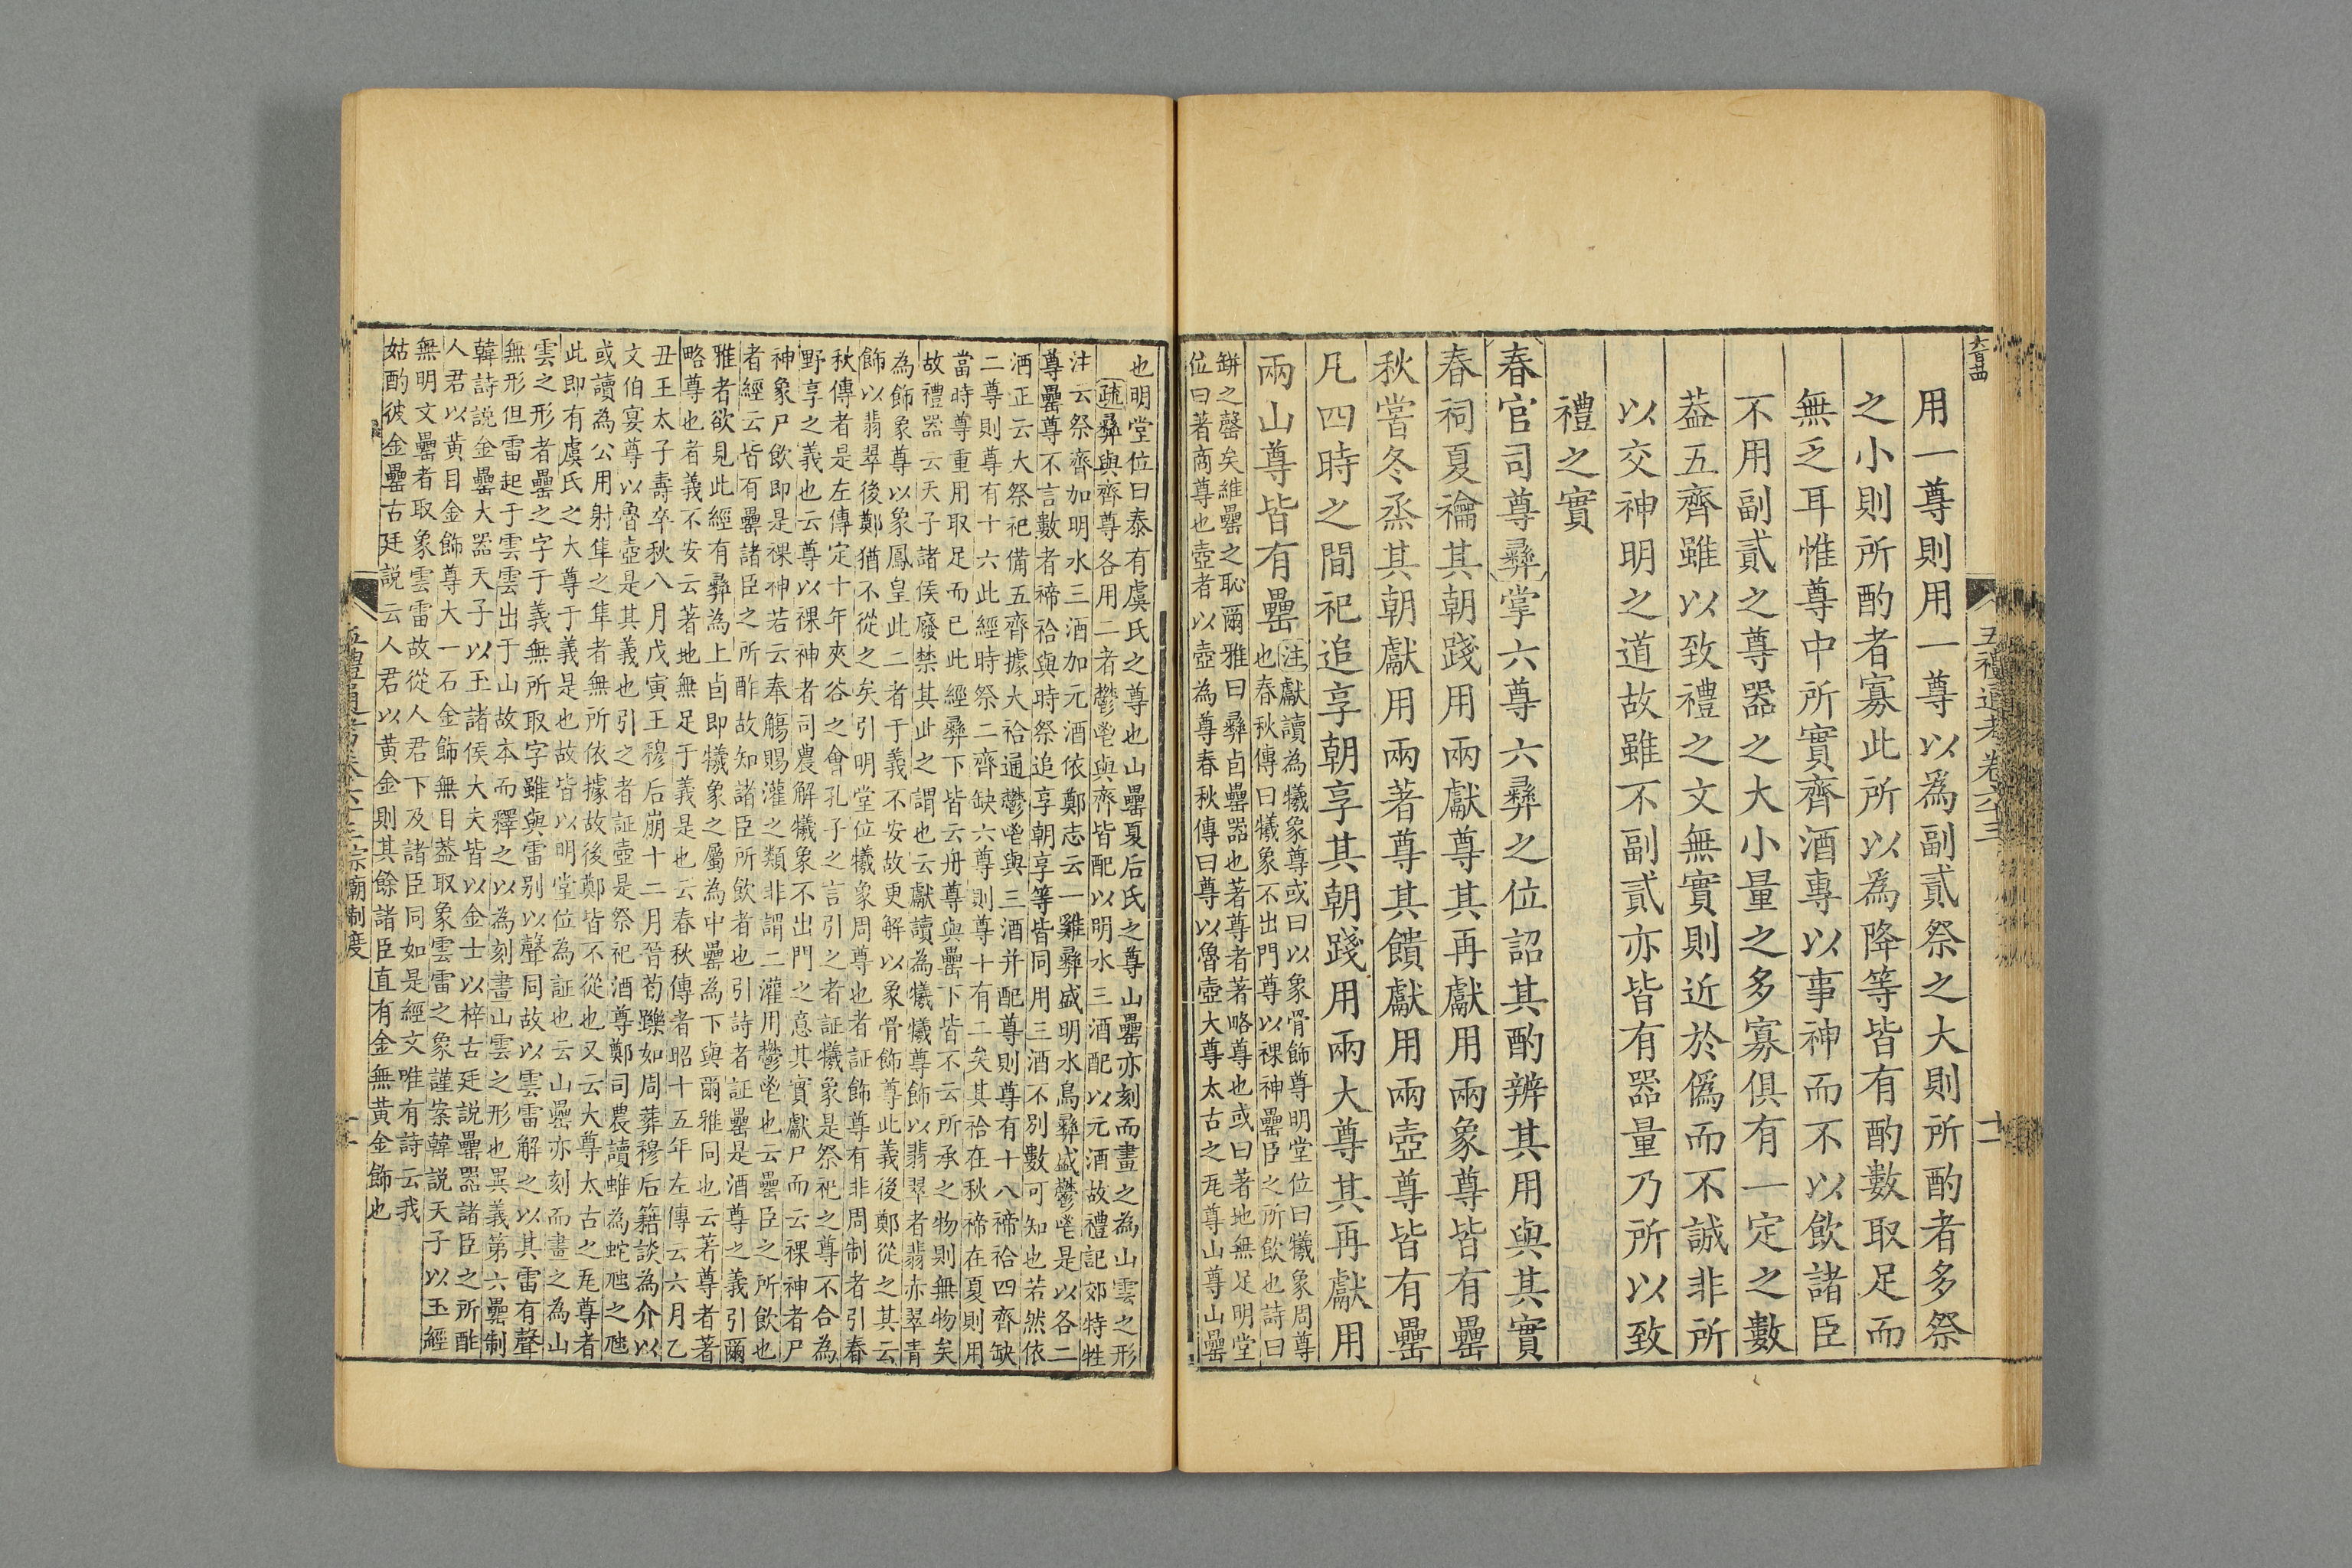 五禮通考卷六十三
用一尊則用一尊以爲副貳祭之大則所酌者多祭
之小則所酌者寡此所以爲降等皆有酌數取足而
無乏耳惟尊中所實齊酒專以事神而不以飲諸臣
不用副貳之尊器之大小量之多寡俱有一定之數
葢五齊雖以致禮之文無實則近於僞而不誠非所
以交神明之道故雖不副貳亦皆有器量乃所以致
禮之實
春官司尊彝掌六尊六彝之位詔其酌辨其用與其實
春祠夏禴其朝踐用兩獻尊其再獻用兩象尊皆有罍
秋嘗冬烝其朝獻用兩著尊其饋獻用兩壺尊皆有罍
凡四時之間祀追享朝享其朝踐用兩大尊其再獻用
兩山尊皆有罍
注獻讀為犧象尊或曰以象骨飾尊明堂位曰犧象周尊
也春秋傳曰犧象不出門尊以祼神罍臣之所飲也詩曰
缾之罄矣維罍之恥爾雅曰彝卣罍器也著尊者著略尊也或曰著地無足明堂
位曰著商尊也壺者以壺為尊春秋傳曰尊以魯壺大尊太古之瓦尊山尊山罍
也明堂位曰泰有虞氏之尊也山罍夏后氏之尊山罍亦刻而畫之為山雲之形
疏彝與齊尊各用二者鬱鬯與齊皆配以明水三酒配以元酒故禮記郊特牲
注云祭齊加明水三酒加元酒依鄭志云一雞彝盛明水鳥彝盛鬱鬯是以各二
尊罍尊不言數者禘祫與時祭追享朝享等皆同用三酒不別數可知也若然依
酒正云大祭祀備五齊據大祫通鬱鬯與三酒并配尊則尊有十八禘祫四齊缺
二尊則尊有十六此經時祭二齊缺六尊則尊十有二矣其祫在秋禘在夏則用
當時尊重用取足而已此經彝下皆云舟尊與罍下皆不云所承之物則無物矣
故禮器云天子諸侯廢禁其此之謂也云獻讀為犧犧尊飾以翡翠者翡赤翠青
為飾象尊以象鳳皇此二者于義不安故更解以象骨飾尊此義後鄭從之其云
飾以翡翠後鄭猶不從之矣引明堂位犧象周尊也者証飾尊有非周制者引春
秋傳者是左傳定十年夾谷之會孔子之言引之者証犧象是祭祀之尊不合為
野享之義也云尊以祼神者司農解犧象不出門之意其實獻尸而云祼神者尸
神象尸飲即是祼神若云奉觴賜灌之類非謂二灌用鬱鬯也云罍臣之所飲也
者經云皆有罍諸臣之所酢故知諸臣所飲者也引詩者証罍是酒尊之義引爾
雅者欲見此經有彝為上卣即犧象之屬為中罍為下與爾雅同也云著尊者著
略尊也者義不安云著地無足于義是也云春秋傳者昭十五年左傳云六月乙
丑王太子壽卒秋八月戊寅王穆后崩十二月晉荀躒如周葬穆后籍談為介以
文伯宴尊以魯壺是其義也引之者証壺是祭祀酒尊鄭司農讀蜼為蛇虺之虺
或讀為公用射隼之隼者無所依據故後鄭皆不從也又云大尊太古之瓦尊者
此即有虞氏之大尊于義是也故皆以明堂位為証也云山罍亦刻而畫之為山
雲之形者罍之字于義無所取字雖與雷別以聲同故以雲雷解之以其雷有聲
無形但雷起于雲雲出于山故本而釋之以為刻畫山雲之形也異義第六罍制
韓詩説金罍大器天子以玉諸侯大夫皆以金士以梓古廷説罍器諸臣之所酢
人君以黃目金飾尊大一石金飾無目葢取象雲雷之象謹案韓説天子以玉經
無明文罍者取象雲雷故從人君下及諸臣同如是經文唯有詩云我
姑酌彼金罍古廷説云人君以黃金則其餘諸臣直有金無黃金飾也
五禮通考卷六十三宗廟制度